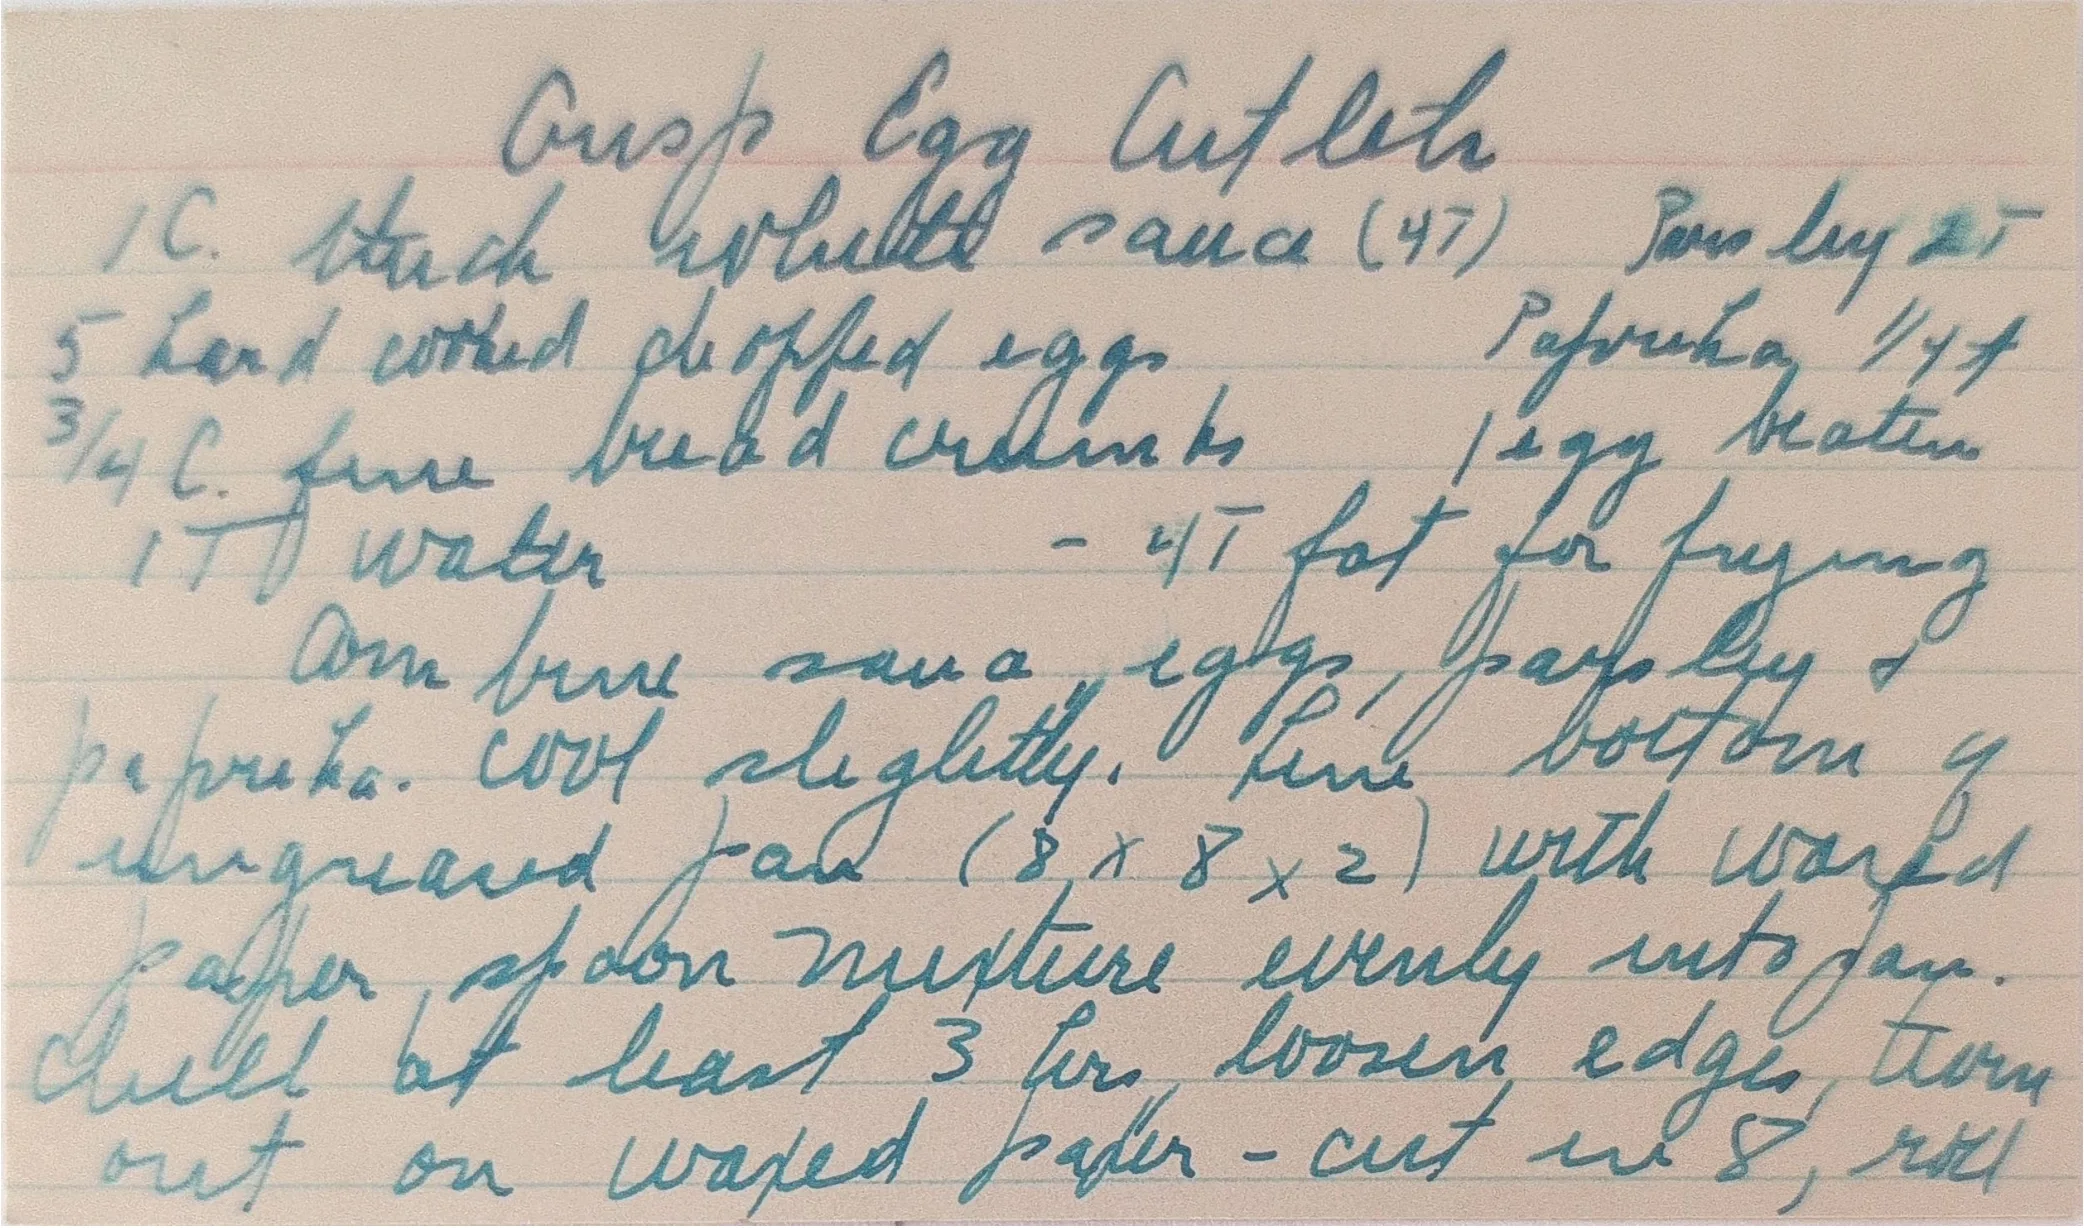 Crisp Egg Cutlets
1 C. thick white sauce (4T) Parsley 2T
5 hard cooked chopped eggs Paprika 1/4 t
3/4 C. fine bread crumbs 1 egg beaten
1 T water - 4T fat for frying
Combine sauce, eggs, parsley &
paprika. Cool slightly. Line bottom of
ungreased pan (8 x 8 x 2) with waxed
paper, spoon mixture evenly into pan.
Chill at least 3 hrs, loosen edges, turn
out on waxed paper - cut in 8, roll